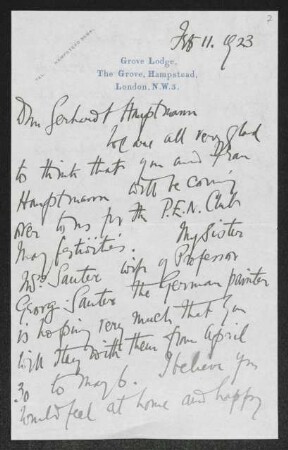 2
TEL. HAMPSTEAD
Feb 11. 1923
Grove Lodge,
The Grove, Hampstead,
London, N.W.3.
Dear Gerhardt Hauptmann
We are all very glad
to think that you and Frau
Hauptmann will be coming
over to us for the P.E.N. Club
May festivities. My Sister
Mrs Sauter wife of Professor
Georg Sauter the German painter
is hoping very much that you
will stay with them from April
30 to May 6. I believe you
would feel at home and happy